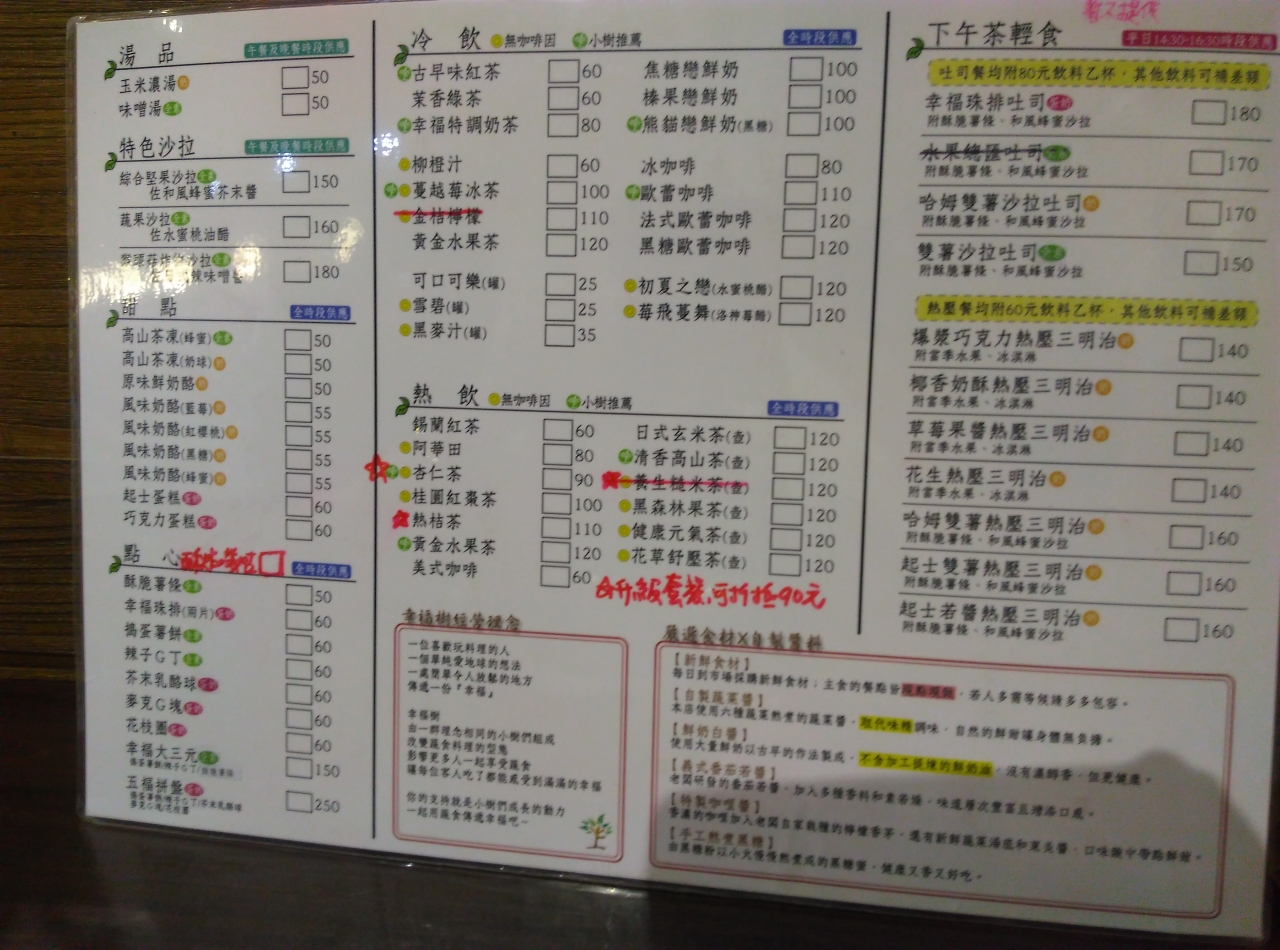 湯 品 午餐及晚餐時段供應
玉米濃湯奶 50
味噌湯全素 50
特色沙拉 午餐及晚餐時段供應
綜合堅果沙拉全素 150
佐和風蜂蜜芥末醬
蔬果沙拉全素 160
佐水蜜桃油醋
沙拉全素 180
辣味噌醬
甜 點 全時段供應
高山茶凍(蜂蜜)全素 50
高山茶凍(奶球)奶 50
原味鮮奶酪奶 50
風味奶酪(藍莓)奶 55
風味奶酪(紅櫻桃)奶 55
風味奶酪(黑糖)奶 55
風味奶酪(蜂蜜)奶 55
起士蛋糕蛋奶 60
巧克力蛋糕蛋奶 60
點 心 全時段供應
酥脆薯條全素 50
幸福珠排(兩片)蛋奶 60
搗蛋薯餅全素 60
辣子G丁全素 60
芥末乳酪球蛋奶 60
麥克G塊蛋奶 60
花枝圈蛋奶 60
幸福大三元全素 150
五福拼盤蛋奶 250
冷 飲 無咖啡因 小樹推薦 全時段供應
古早味紅茶 60
茉香綠茶 60
幸福特調奶茶 80
柳橙汁 60
蔓越莓冰茶 100
金桔檸檬 110
黃金水果茶 120
可口可樂(罐) 25
雪碧(罐) 25
黑麥汁(罐) 35
焦糖戀鮮奶 100
榛果戀鮮奶 100
熊貓戀鮮奶(黑糖) 100
冰咖啡 80
歐蕾咖啡 110
法式歐蕾咖啡 120
黑糖歐蕾咖啡 120
初夏之戀(水蜜桃醋) 120
莓飛蔓舞(洛神莓醋) 120
熱 飲 無咖啡因 小樹推薦 全時段供應
錫蘭紅茶 60
阿華田 80
杏仁茶 90
桂圓紅棗茶 100
熱桔茶 110
黃金水果茶 120
美式咖啡 60
日式玄米茶(壺) 120
清香高山茶(壺) 120
養生糙米茶(壺) 120
黑森林果茶(壺) 120
健康元氣茶(壺) 120
花草舒壓茶(壺) 120
升級套餐,可折抵90元
幸福樹經營理念
一位喜歡玩料理的人
一個單純愛地球的想法
一處簡單令人放鬆的地方
傳遞一份『幸福』
幸福樹
由一群理念相同的小樹們組成
改變蔬食料理的型態
影響更多人一起享受蔬食
讓每位客人吃了都能感受到滿滿的幸福
你的支持就是小樹們成長的動力
一起用蔬食傳遞幸福吧~
暫不提供
下午茶輕食 平日14:30-16:30時段供應
吐司餐均附80元飲料乙杯，其他飲料可補差額
幸福珠排吐司蛋奶 180
附酥脆薯條、和風蜂蜜沙拉
水果總匯吐司全素 170
附酥脆薯條、和風蜂蜜沙拉
哈姆雙薯沙拉吐司奶 170
附酥脆薯條、和風蜂蜜沙拉
雙薯沙拉吐司全素 150
附酥脆薯條、和風蜂蜜沙拉
熱壓餐均附60元飲料乙杯，其他飲料可補差額
爆漿巧克力熱壓三明治奶 140
附當季水果、冰淇淋
椰香奶酥熱壓三明治奶 140
附當季水果、冰淇淋
草莓果醬熱壓三明治奶 140
附當季水果、冰淇淋
花生熱壓三明治奶 140
附當季水果、冰淇淋
哈姆雙薯熱壓三明治奶 160
附酥脆薯條、和風蜂蜜沙拉
起士雙薯熱壓三明治奶 160
附酥脆薯條、和風蜂蜜沙拉
起士若醬熱壓三明治奶 160
附酥脆薯條、和風蜂蜜沙拉
嚴選食材X自製醬料
【新鮮食材】
每日到市場採購新鮮食材；主食的餐點皆現點現做，若人多需等候請多多包容。
【自製蔬菜醬】
本店使用六種蔬菜熬煮的蔬菜醬，取代味精調味，自然的鮮甜讓身體無負擔。
【鮮奶白醬】
使用大量鮮奶以古早的作法製成，不含加工提煉的鮮奶油，沒有濃醇香，但更健康。
【義式番茄若醬】
老闆研發的番茄若醬，加入多種香料和素若燥，味道層次豐富且增添口感。
【特製咖哩醬】
香濃的咖哩加入老闆自家栽種的檸檬香茅，還有新鮮蔬菜湯底和果泥醬，口味微辛帶點鮮甜。
【手工熬煮黑糖】
由黑糖粉以小火慢慢熬煮成的黑糖蜜，健康又香又好吃。